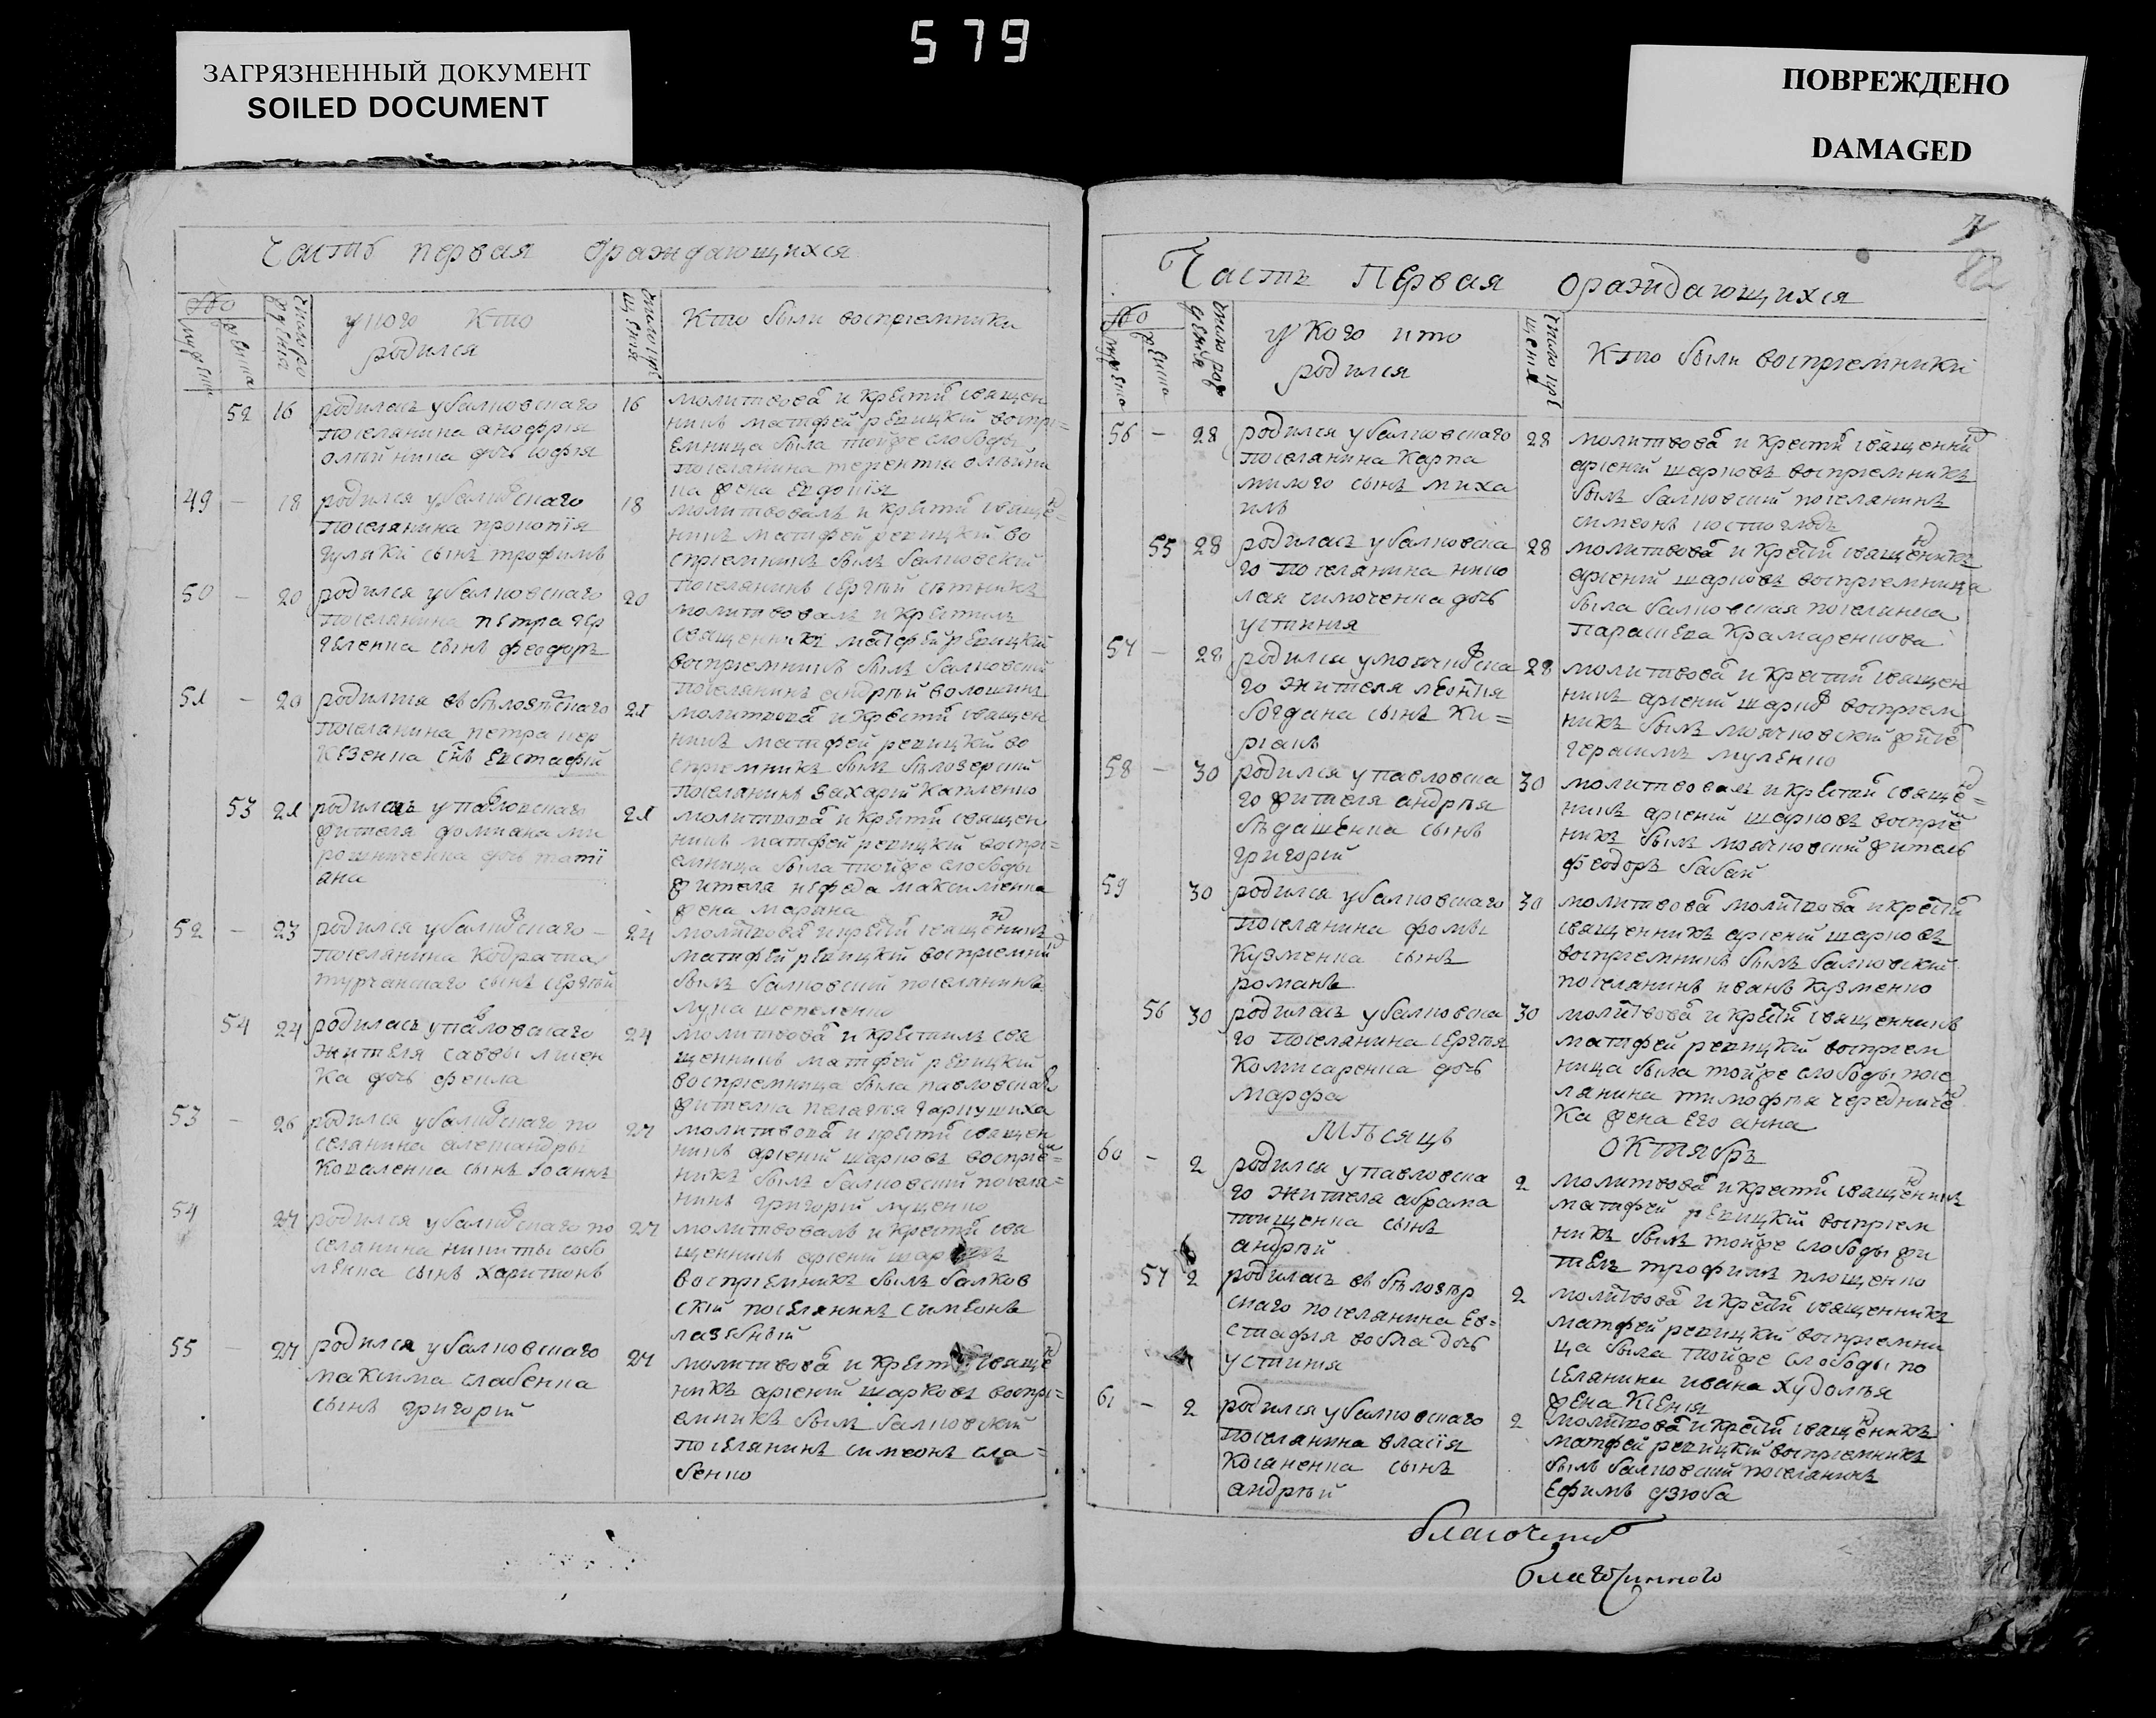 579
ЗАГРЯЗНЕННЫЙ ДОКУМЕНТ
SOILED DOCUMENT
ПОВРЕЖДЕНО
DAMAGED
Часть первая
№
кто
родился
Кто были воспрiемники
52 16 родилась у балковскаго
поселянина анофрiя
олѣйника дочь софiя
16 молитвова и крести священ
никъ матфей рѣпицкiй воспрi=
емница была тойже слободы
поселянина терентiя олѣйни
ка жена евдокiя
49 - 18 родился у балковскаго
поселянина прокопiя
гуляки сынъ трофимъ
18 молитвовалъ и крести свяще=
никъ матфей рѣпицкiй во
спрiемникъ былъ балковскiй
поселянинъ сергѣй
50 - 20 родился у балковскаго
поселянина петра
сынъ феодоръ
20 молитвовалъ и крестилъ
священникъ матфей рѣпицкiй
воспрiемникъ былъ балковскiй
поселянинъ андрѣй волошинъ
51 - 20 родился
поселянина петра
снъ евстафiй
21 молитвова и крести священ
никъ матфей рѣпицкiй во
спрiемникъ былъ бѣлозерскiй
поселянинъ захарiй капленко
53 21 родилась у павловскаго
жителя домиана ми
рошниченка дочь татi
ана
21 молитвова и крести священ
никъ матфей рѣпицкiй воспрi=
емница была тойже слободы
жителя нефеда максименка
жена марина
52 - 23 родился у балковскаго
поселянина кодрата
турчанскаго сынъ сергѣй
24 молитвова и крести священикъ
матфей рѣпицкiй воспрiемни
былъ балковскiй поселянинъ
лука шепеленко
54 24 родилась у павловскаго
жителя саввы лисен
ка дочь фекла
24 молитвова и крестилъ свя
щенникъ матфей рѣпицкiй
воспрiемница была павловскаго
жителка пелагѣя гаркушиха
53 - 26 родился у балковскаго по
селянина александры
коваленка сынъ iоаннъ
27 молитвова и крести священ
никъ арсенiй шарковъ воспрiе=
никъ былъ балковскiй поселя=
нинъ григорiй луценко
54 27 родился у балковскаго по
селянина никиты собо
ленка сынъ харитонъ
27 молитвовалъ и крести свя
щенникъ арсенiй
воспрiемникъ былъ балков
скiй поселянинъ симеонъ
лазебный
55 - 27 родился у балковскаго
максима слабенка
сынъ григорiй
27 молитвова и крести свяще
никъ арсенiй шарковъ воспрi=
емникъ былъ балковскiй
поселянинъ симеонъ сла=
бенко
82
Часть Первая ораждающихся
№
у кого кто
родился
Кто были воспрiемники
56 - 28 родился у балковскаго
поселянина карпа
милого сынъ миха
илъ
28 молитвова и крести священни
арсенiй шарковъ воспрiемникъ
былъ балковскiй поселянинъ
симеонъ
55 28 родилась у балковска
го поселянина нико
лая симоченка дочь
устинiя
28 молитвова и крести священикъ
арсенiй шарковъ воспрiемница
была балковская поселянка
парасева крамаренкова
57 - 28 родился у моячковска
го жителя леонтiя
богдана сынъ ки=
рiакъ
28 молитвова и крести священ
никъ арсенiй шарков воспрiем
никъ былъ моячковскiй жите
герасимъ муленко
58 - 30 родился у павловска
го жителя андрѣя
бѣдашенка сынъ
григорiй
30 молитвовалъ и крести свяще=
никъ арсенiй шарковъ воспрiе
никъ былъ моячковскiй житель
феодоръ бабай
59 30 родился у балковскаго
поселянина фомы
кузменка сынъ
романъ
30 молитвова молитвова и крести
священникъ арсенiй шарковъ
воспрiемникъ былъ балковскiй
поселянинъ иванъ кузменко
56 30 родилась у балковска
го поселянина сергѣя
комисаренка дочь
марфа
30 молитвова и крести священникъ
матфей рѣпицкiй воспрiем
ница была тойже слободы посе
лянина тимофѣя череднiче
ка жена его анна
Мѣсяцъ октябрь
60 - 2 родился у павловска
го жителя абрама
тищенка сынъ
андрѣй
2 молитвова и крести священникъ
матфей рѣпицкiй воспрiем
никъ былъ тойже слободы жи
тель трофимъ площенко
57 2 родилась
скаго поселянина ев=
стафiя дочь
устинiя
2 молитвова и крести священникъ
матфей рѣпицкiй воспрiемни
ца была тойже слободы по
селянина ивана худолѣя
жена ксенiя
61 - 2 родился у балковскаго
поселянина власiя
косаненка сынъ
андрѣй
2 молитвова и крести священикъ
матфей рѣпицкiй воспрiемникъ
былъ балковскiй поселянинъ
ефимъ дзюба